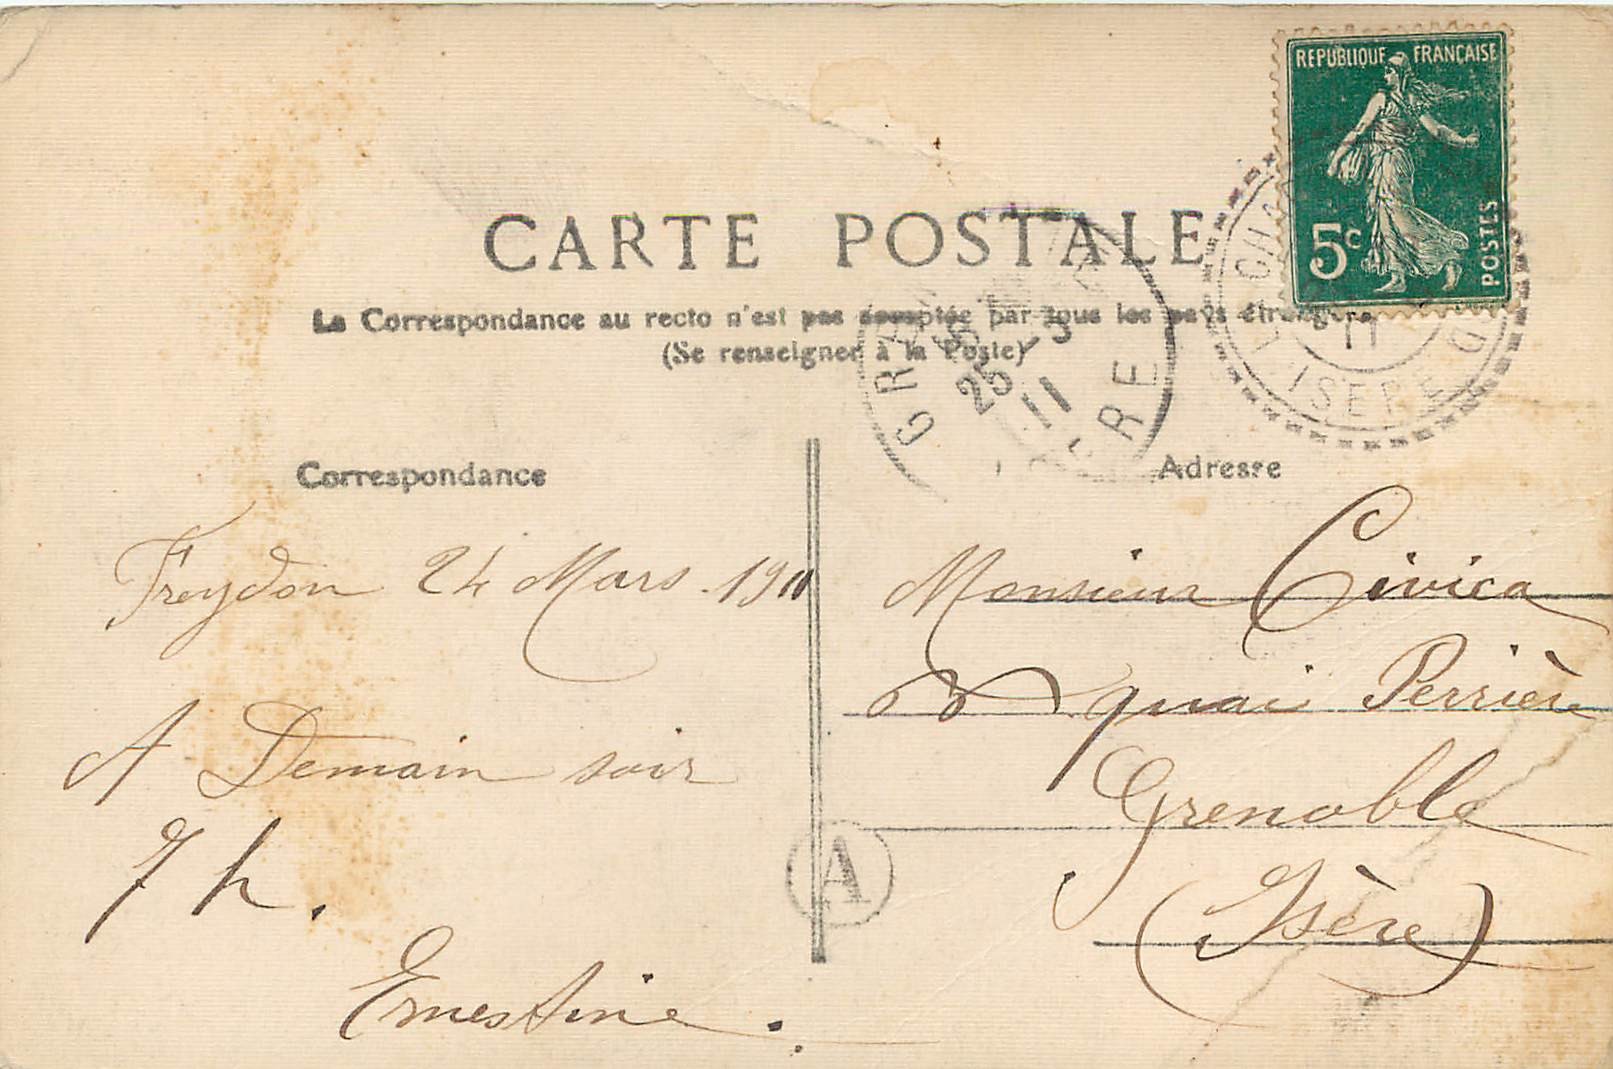 REPUBLIQUE FRANÇAISE
5c
POSTES
CARTE POSTALE
La Correspondance au recto n'est pas acceptée par tous les pays étrangers
(Se renseigner à la Poste)
25 -3
11
11
ISERE
Correspondance
Freydon 24 Mars 1911
A Demain soir
7 h.
Ernestine.
A
Adresse
Monsieur Civica
quai Perrière
Grenoble
(Isère)